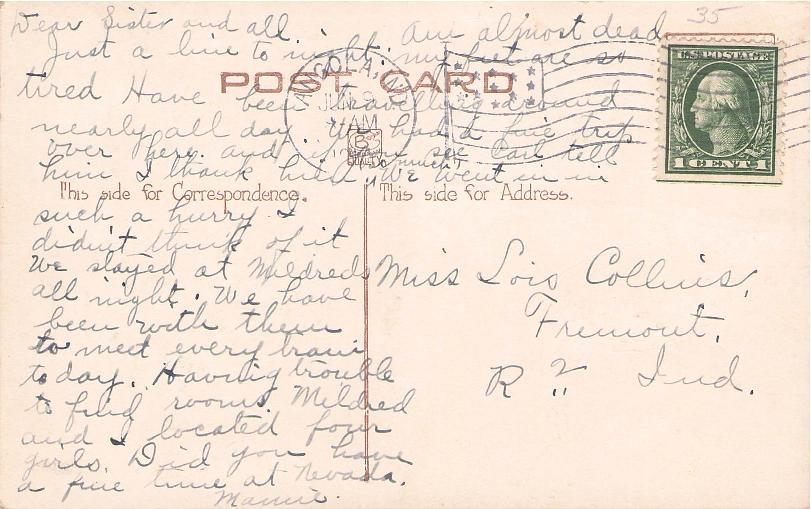 35
Dear Sister and all.
Just a line to night. Am almost dead
my feet are so
tired Have been travelling around
nearly all day. We had a fine trip
over here and if you see Carl tell
him I thank him so much. We went in in
such a hurry I
didn't think of it
We stayed at Mildreds
all night. We have
been with them
to meet every train
to day. Having trouble
to find rooms. Mildred
and I located four
girls. Did you have
a fine time at Nevada.
Mamie.
POST CARD
ANGOLA,
JUN
AM
U.S. POSTAGE
1 CENT 1
QUALITY
This side for Correspondence.
This side for Address.
Miss Lois Collins,
Fremont,
R 2 Ind.